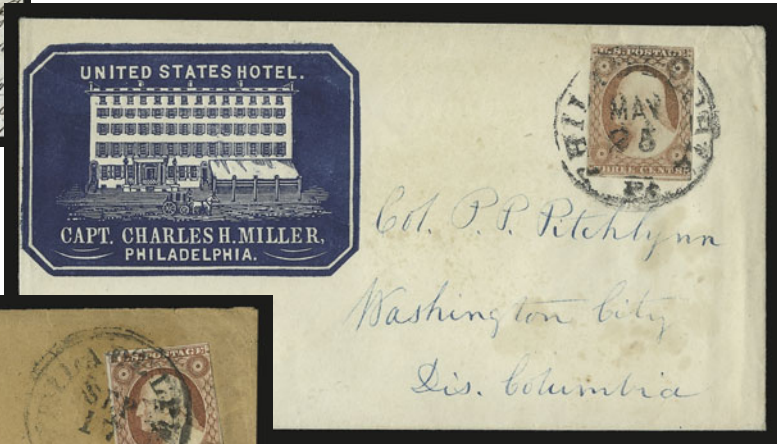 UNITED STATES HOTEL.
CAPT. CHARLES H. MILLER,
PHILADELPHIA.
U.S. POSTAGE
MAY
25
THREE CENTS
Pa
Col. P. P. Pitchlynn
Washington City
Dis. Columbia
U.S. POSTAGE